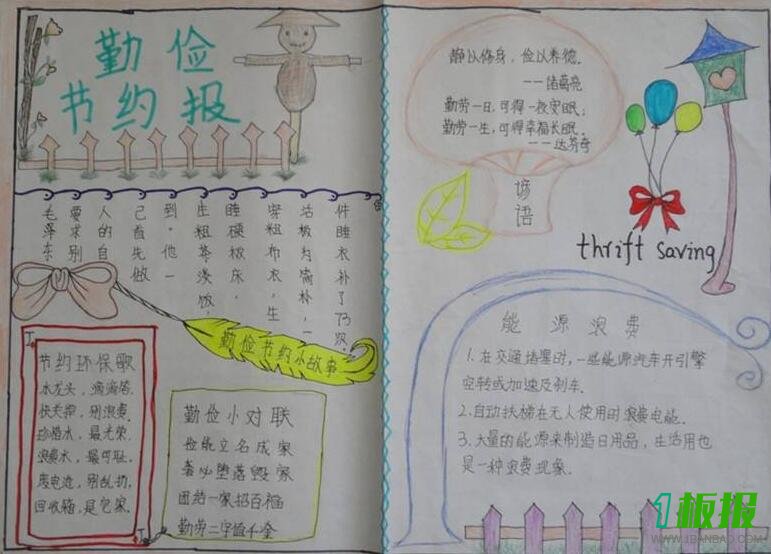 勤俭
节约报
毛泽东
要求别
人的自
己首先做
到。他一
生粗茶淡饭，
睡硬板床，
穿粗布衣，生
活极为简朴，一
件睡衣补了73次，
勤俭节约小故事
节约环保歌
水龙头，滴滴答.
快关掉，别浪费.
珍惜水，最光荣.
浪费水，最可耻.
废电池，别乱扔.
回收箱，是它家.
勤俭小对联
俭能立名成家
奢必堕落毁家
团结一家招百福
勤劳二字值千金
静以修身，俭以养德.
——诸葛亮
勤劳一日，可得一夜安眠；
勤劳一生，可得幸福长眠.
——达芬奇
谚语
thrift saving
能源浪费
1.在交通堵塞时，一些能源汽车开引擎
空转或加速及刹车.
2.自动扶梯在无人使用时浪费电能.
3.大量的能源来制造日用品，生活用也
是一种浪费现象.
1板报
WWW.1BANBAO.COM